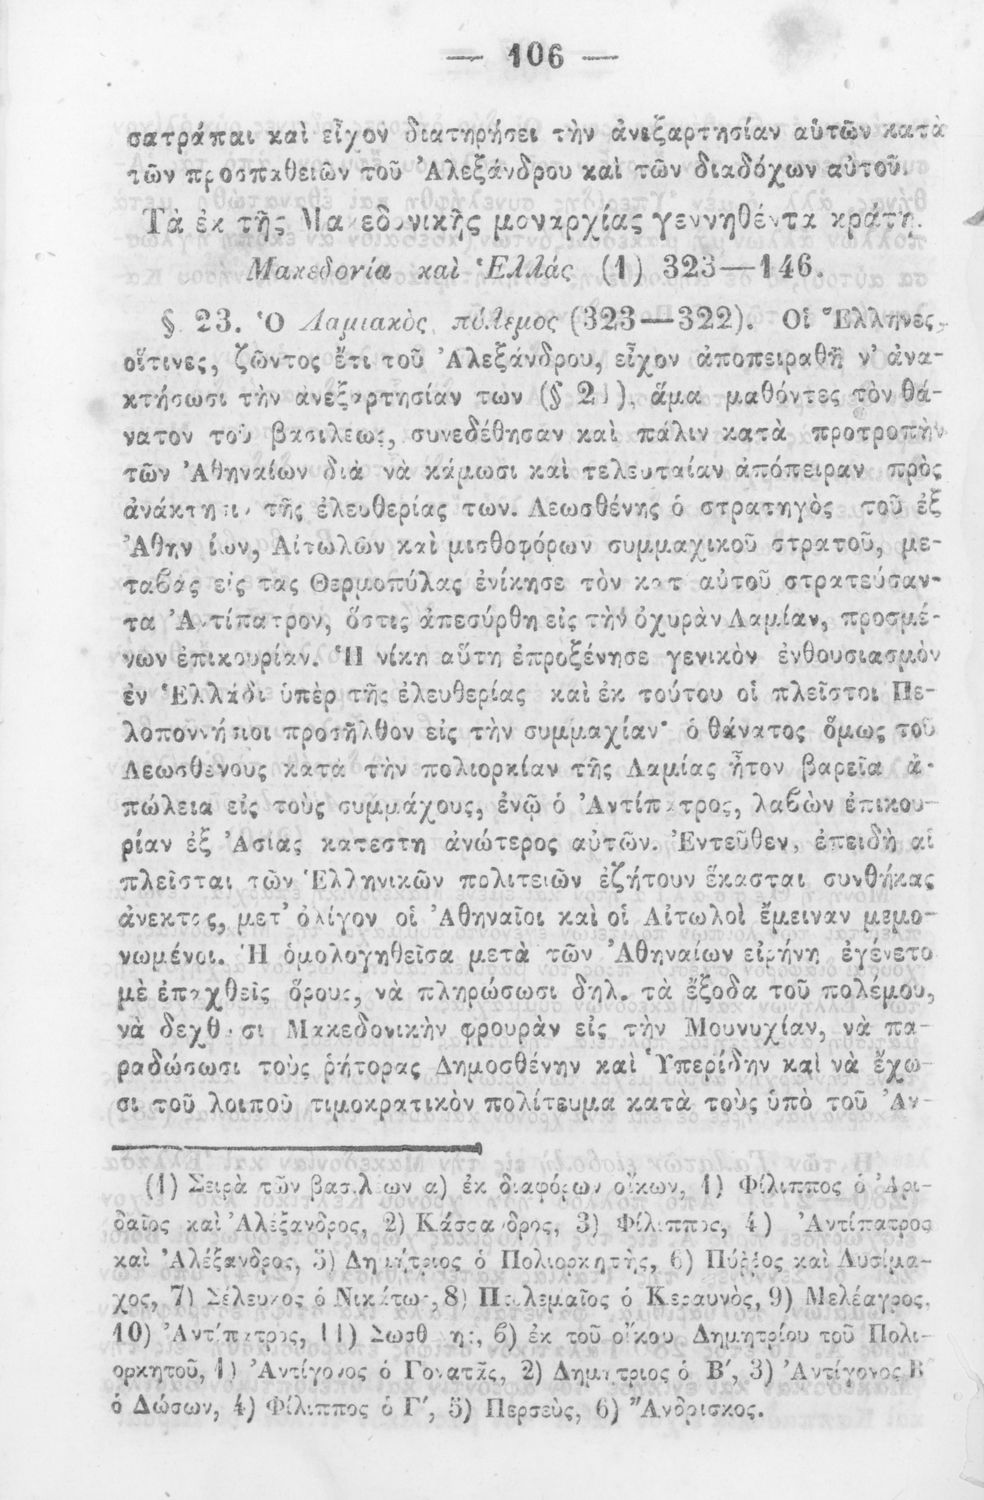 — 106 —
σατράπαι καὶ εἶχον διατηρήσει τὴν ἀνεξαρτησίαν αὑτῶν κατὰ
τῶν προσπαθειῶν τοῦ Ἀλεξάνδρου καὶ τῶν διαδόχων αὐτοῦ.
Τὰ ἐκ τῆς Μακεδονικῆς μοναρχίας γεννηθέντα κράτη.
Μακεδονία καὶ Ἑλλάς (1) 323—146.
§ 23. Ὁ Λαμιακὸς πόλεμος (323—322). Οἱ Ἕλληνες,
οἵτινες, ζῶντος ἔτι τοῦ Ἀλεξάνδρου, εἶχον ἀποπειραθῆ ν' ἀνα-
κτήσωσι τὴν ἀνεξαρτησίαν των (§ 2 ), ἅμα μαθόντες τὸν θά-
νατον τοῦ βασιλέως, συνεδέθησαν καὶ πάλιν κατὰ προτροπὴν
τῶν Ἀθηναίων διὰ νὰ κάμωσι καὶ τελευταίαν ἀπόπειραν πρὸς
ἀνάκτησιν τῆς ἐλευθερίας των. Λεωσθένης ὁ στρατηγὸς τοῦ ἐξ
Ἀθηναίων, Αἰτωλῶν καὶ μισθοφόρων συμμαχικοῦ στρατοῦ, με-
ταβὰς εἰς τὰς Θερμοπύλας ἐνίκησε τὸν κατ' αὐτοῦ στρατεύσαν-
τα Ἀντίπατρον, ὅστις ἀπεσύρθη εἰς τὴν ὀχυρὰν Λαμίαν, προσμέ-
νων ἐπικουρίαν. Ἡ νίκη αὕτη ἐπροξένησε γενικὸν ἐνθουσιασμὸν
ἐν Ἑλλάδι ὑπὲρ τῆς ἐλευθερίας καὶ ἐκ τούτου οἱ πλεῖστοι Πε-
λοποννήσιοι προσῆλθον εἰς τὴν συμμαχίαν· ὁ θάνατος ὅμως τοῦ
Λεωσθένους κατὰ τὴν πολιορκίαν τῆς Λαμίας ἦτον βαρεῖα ἀ-
πώλεια εἰς τοὺς συμμάχους, ἐνῷ ὁ Ἀντίπατρος, λαβὼν ἐπικου-
ρίαν ἐξ Ἀσίας κατέστη ἀνώτερος αὐτῶν. Ἐντεῦθεν, ἐπειδὴ αἱ
πλεῖσται τῶν Ἑλληνικῶν πολιτειῶν ἐζήτουν ἕκασται συνθήκας
ἀνεκτάς, μετ' ὀλίγον οἱ Ἀθηναῖοι καὶ οἱ Αἰτωλοὶ ἔμειναν μεμο-
νωμένοι. Ἡ ὁμολογηθεῖσα μετὰ τῶν Ἀθηναίων εἰρήνη ἐγένετο
μὲ ἐπαχθεῖς ὅρους, νὰ πληρώσωσι δηλ. τὰ ἔξοδα τοῦ πολέμου,
νὰ δεχθῶσι Μακεδονικὴν φρουρὰν εἰς τὴν Μουνυχίαν, νὰ πα-
ραδώσωσι τοὺς ῥήτορας Δημοσθένην καὶ Ὑπερίδην καὶ νὰ ἔχω-
σι τοῦ λοιποῦ τιμοκρατικὸν πολίτευμα κατὰ τοὺς ὑπὸ τοῦ Ἀν-
(1) Σειρὰ τῶν βασιλέων α) ἐκ διαφόρων οἴκων, 1) Φίλιππος ὁ Ἀρι-
δαῖος καὶ Ἀλέξανδρος, 2) Κάσσανδρος, 3) Φίλιππος, 4) Ἀντίπατρος
καὶ Ἀλέξανδρος, 5) Δημήτριος ὁ Πολιορκητὴς, 6) Πύῤῥος καὶ Λυσίμα-
χος, 7) Σέλευκος ὁ Νικάτωρ, 8) Πτολεμαῖος ὁ Κεραυνὸς, 9) Μελέαγρος,
10) Ἀντίπατρος, 11) Σωσθένης, β) ἐκ τοῦ οἴκου Δημητρίου τοῦ Πολι-
ορκητοῦ, 1) Ἀντίγονος ὁ Γονατᾶς, 2) Δημήτριος ὁ Β΄, 3) Ἀντίγονος Β΄
ὁ Δώσων, 4) Φίλιππος ὁ Γ΄, 5) Περσεὺς, 6) Ἄνδρισκος.